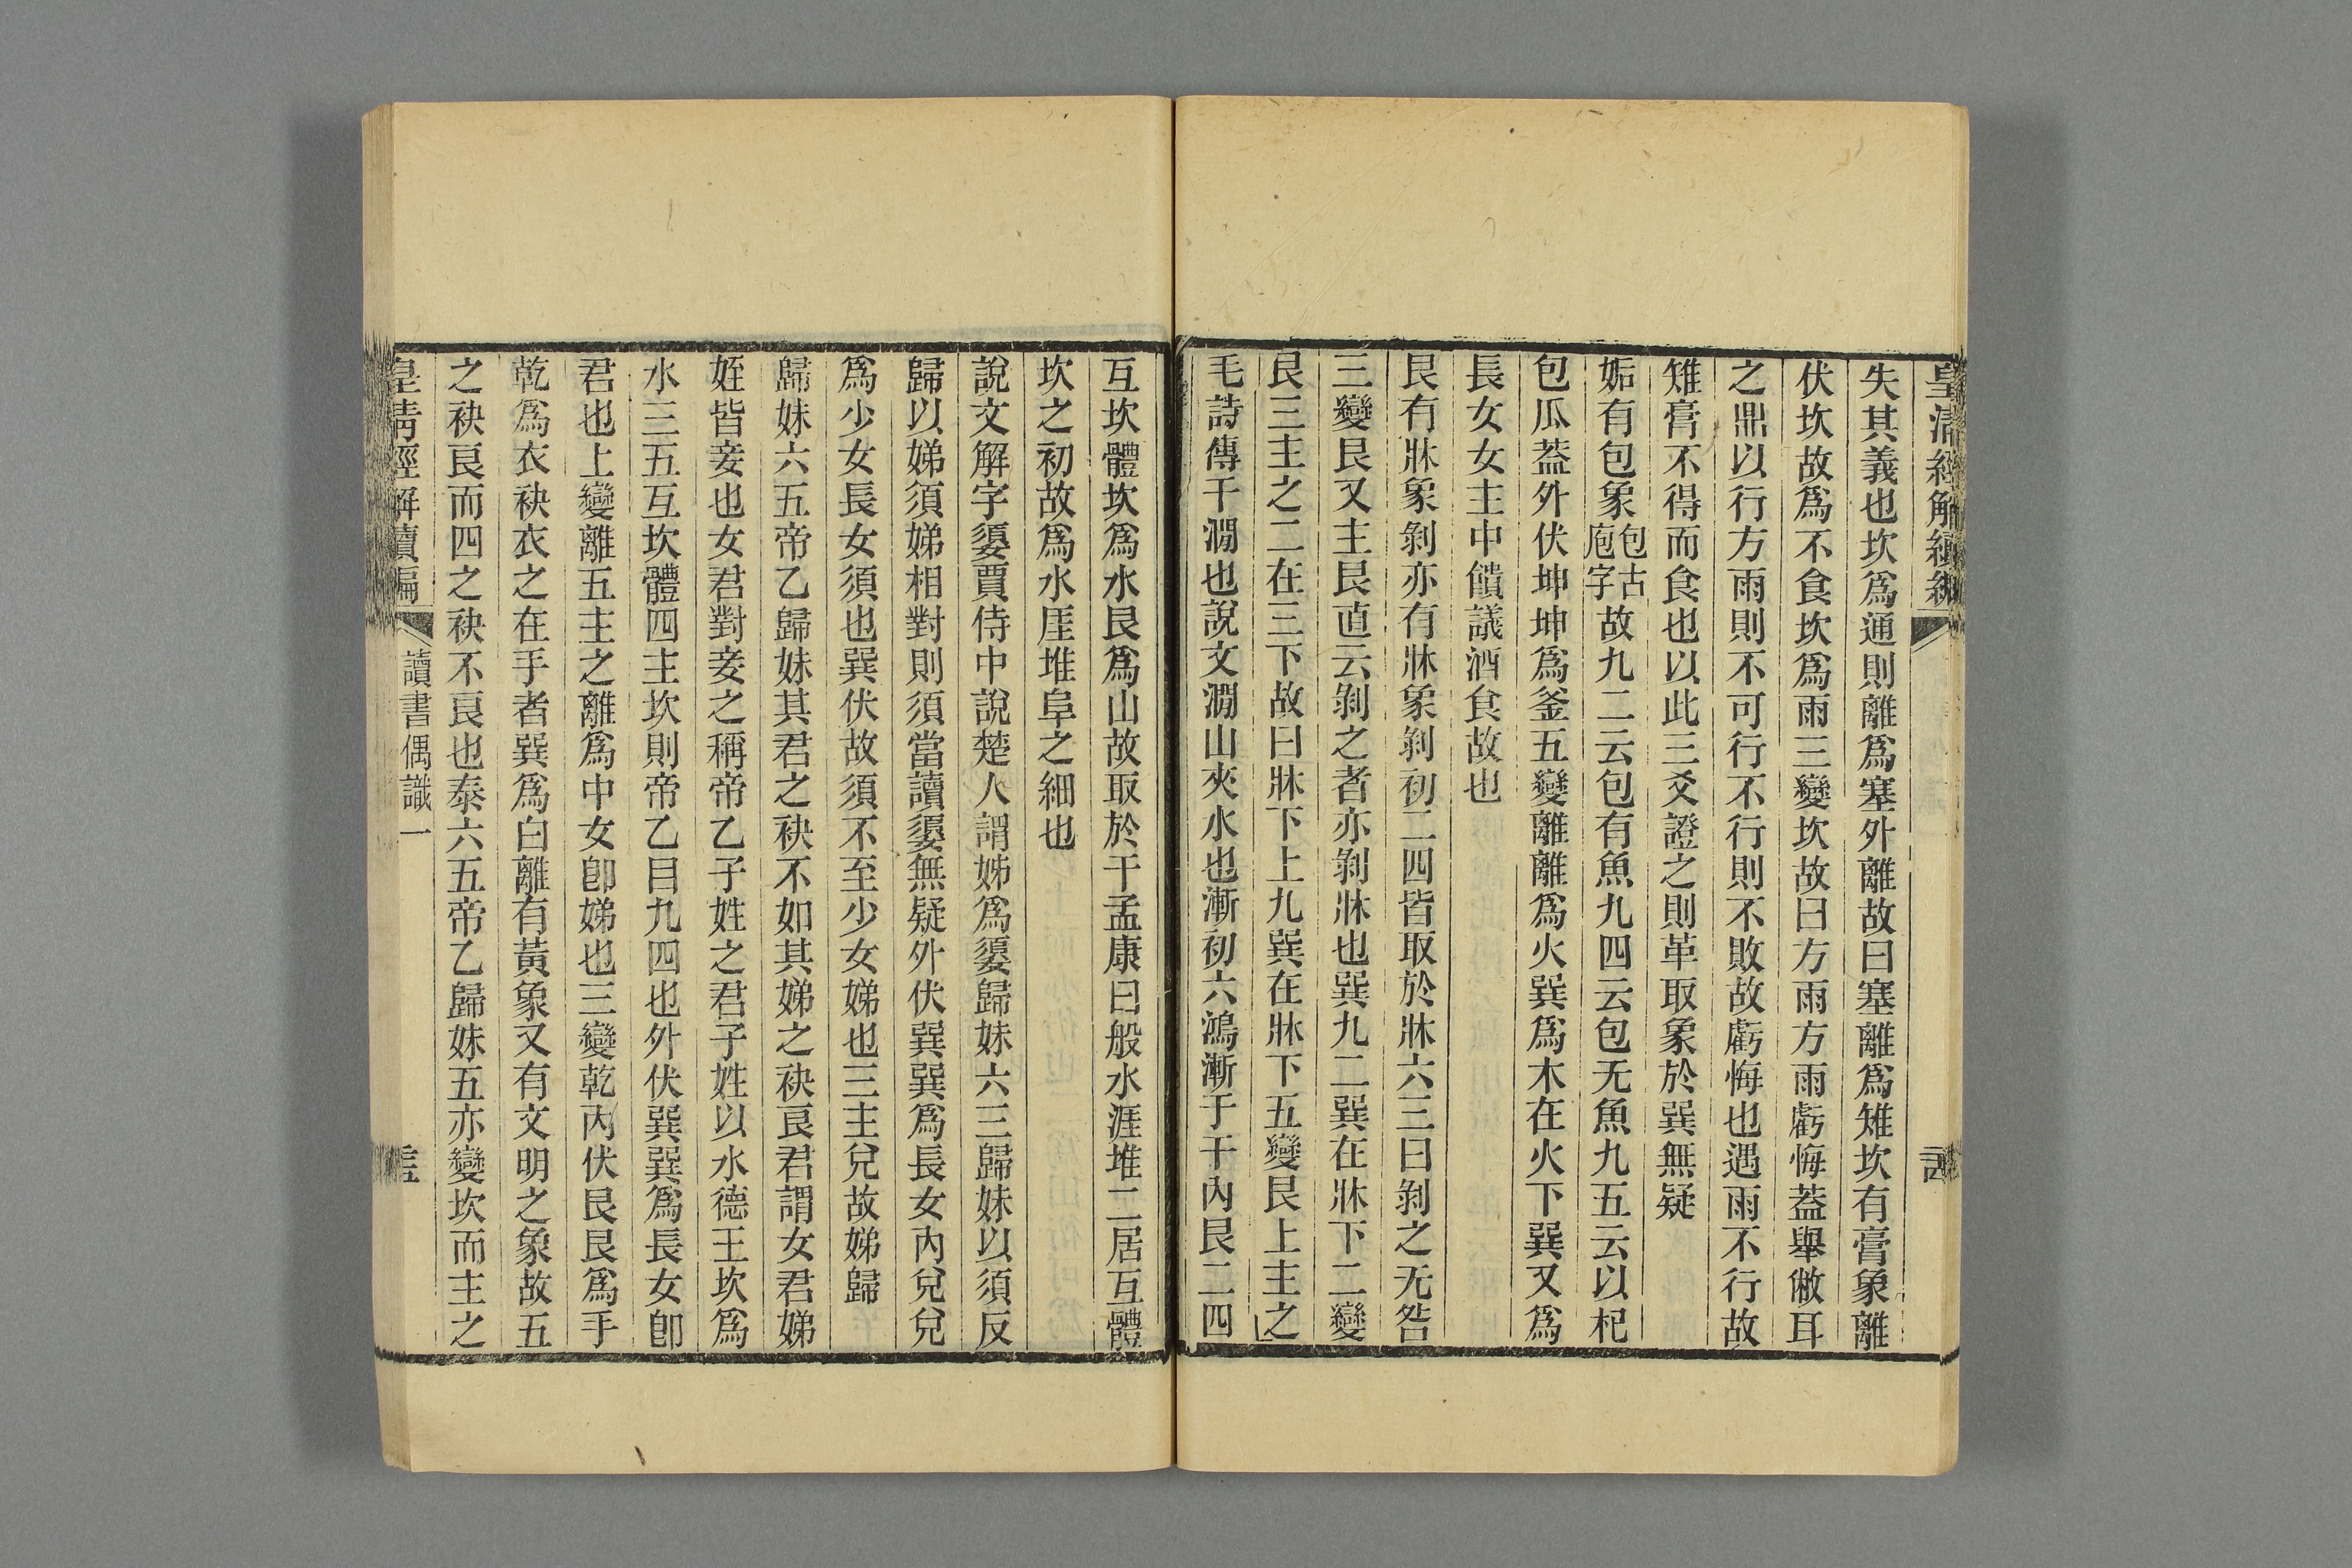 皇清經解續編
失其義也坎爲通則離爲塞外離故曰塞離爲雉坎有膏象離
伏坎故爲不食坎爲雨三變坎故曰方雨方雨虧悔蓋舉敝耳
之鼎以行方雨則不可行不行則不敗故虧悔也遇雨不行故
雉膏不得而食也以此三爻證之則革取象於巽無疑
姤有包象包古庖字故九二云包有魚九四云包无魚九五云以杞
包瓜蓋外伏坤坤爲釜五變離離爲火巽爲木在火下巽又爲
長女女主中饋議酒食故也
艮有牀象剝亦有牀象剝初二四皆取於牀六三曰剝之无咎
三變艮又主艮直云剝之者亦剝牀也巽九二巽在牀下二變
艮三主之二在三下故曰牀下上九巽在牀下五變艮上主之
毛詩傳干澗也說文澗山夾水也漸初六鴻漸于干內艮二四
互坎體坎爲水艮爲山故取於干孟康曰般水涯堆二居互體
坎之初故爲水厓堆阜之細也
說文解字媭賈侍中說楚人謂姊爲媭歸妹六三歸妹以須反
歸以娣須娣相對則須當讀媭無疑外伏巽巽爲長女內兌兌
爲少女長女須也巽伏故須不至少女娣也三主兌故娣歸
歸妹六五帝乙歸妹其君之袂不如其娣之袂良君謂女君娣
姪皆妾也女君對妾之稱帝乙子姓之君子姓以水德王坎爲
水三五互坎體四主坎則帝乙目九四也外伏巽巽爲長女卽
君也上變離五主之離爲中女卽娣也三變乾內伏艮艮爲手
乾爲衣袂衣之在手者巽爲白離有黃象又有文明之象故五
之袂良而四之袂不良也泰六五帝乙歸妹五亦變坎而主之
皇清經解續編
讀書偶識一